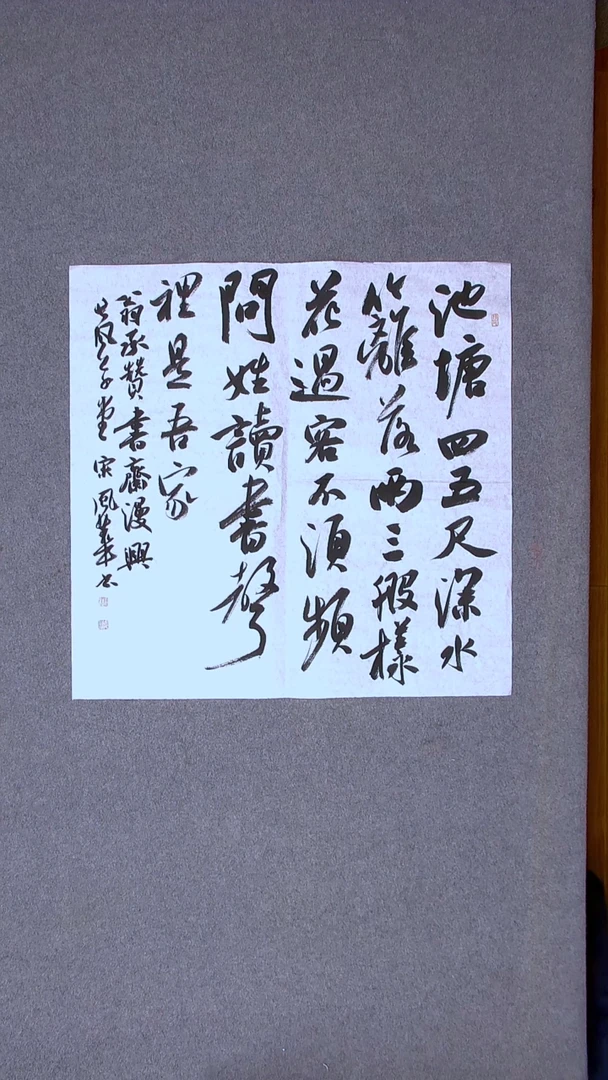 池塘四五尺深水
籬落兩三般樣
花過客不須頻
問姓讀書聲
裡是吾家
翁承贊書齋漫興
堂 宋